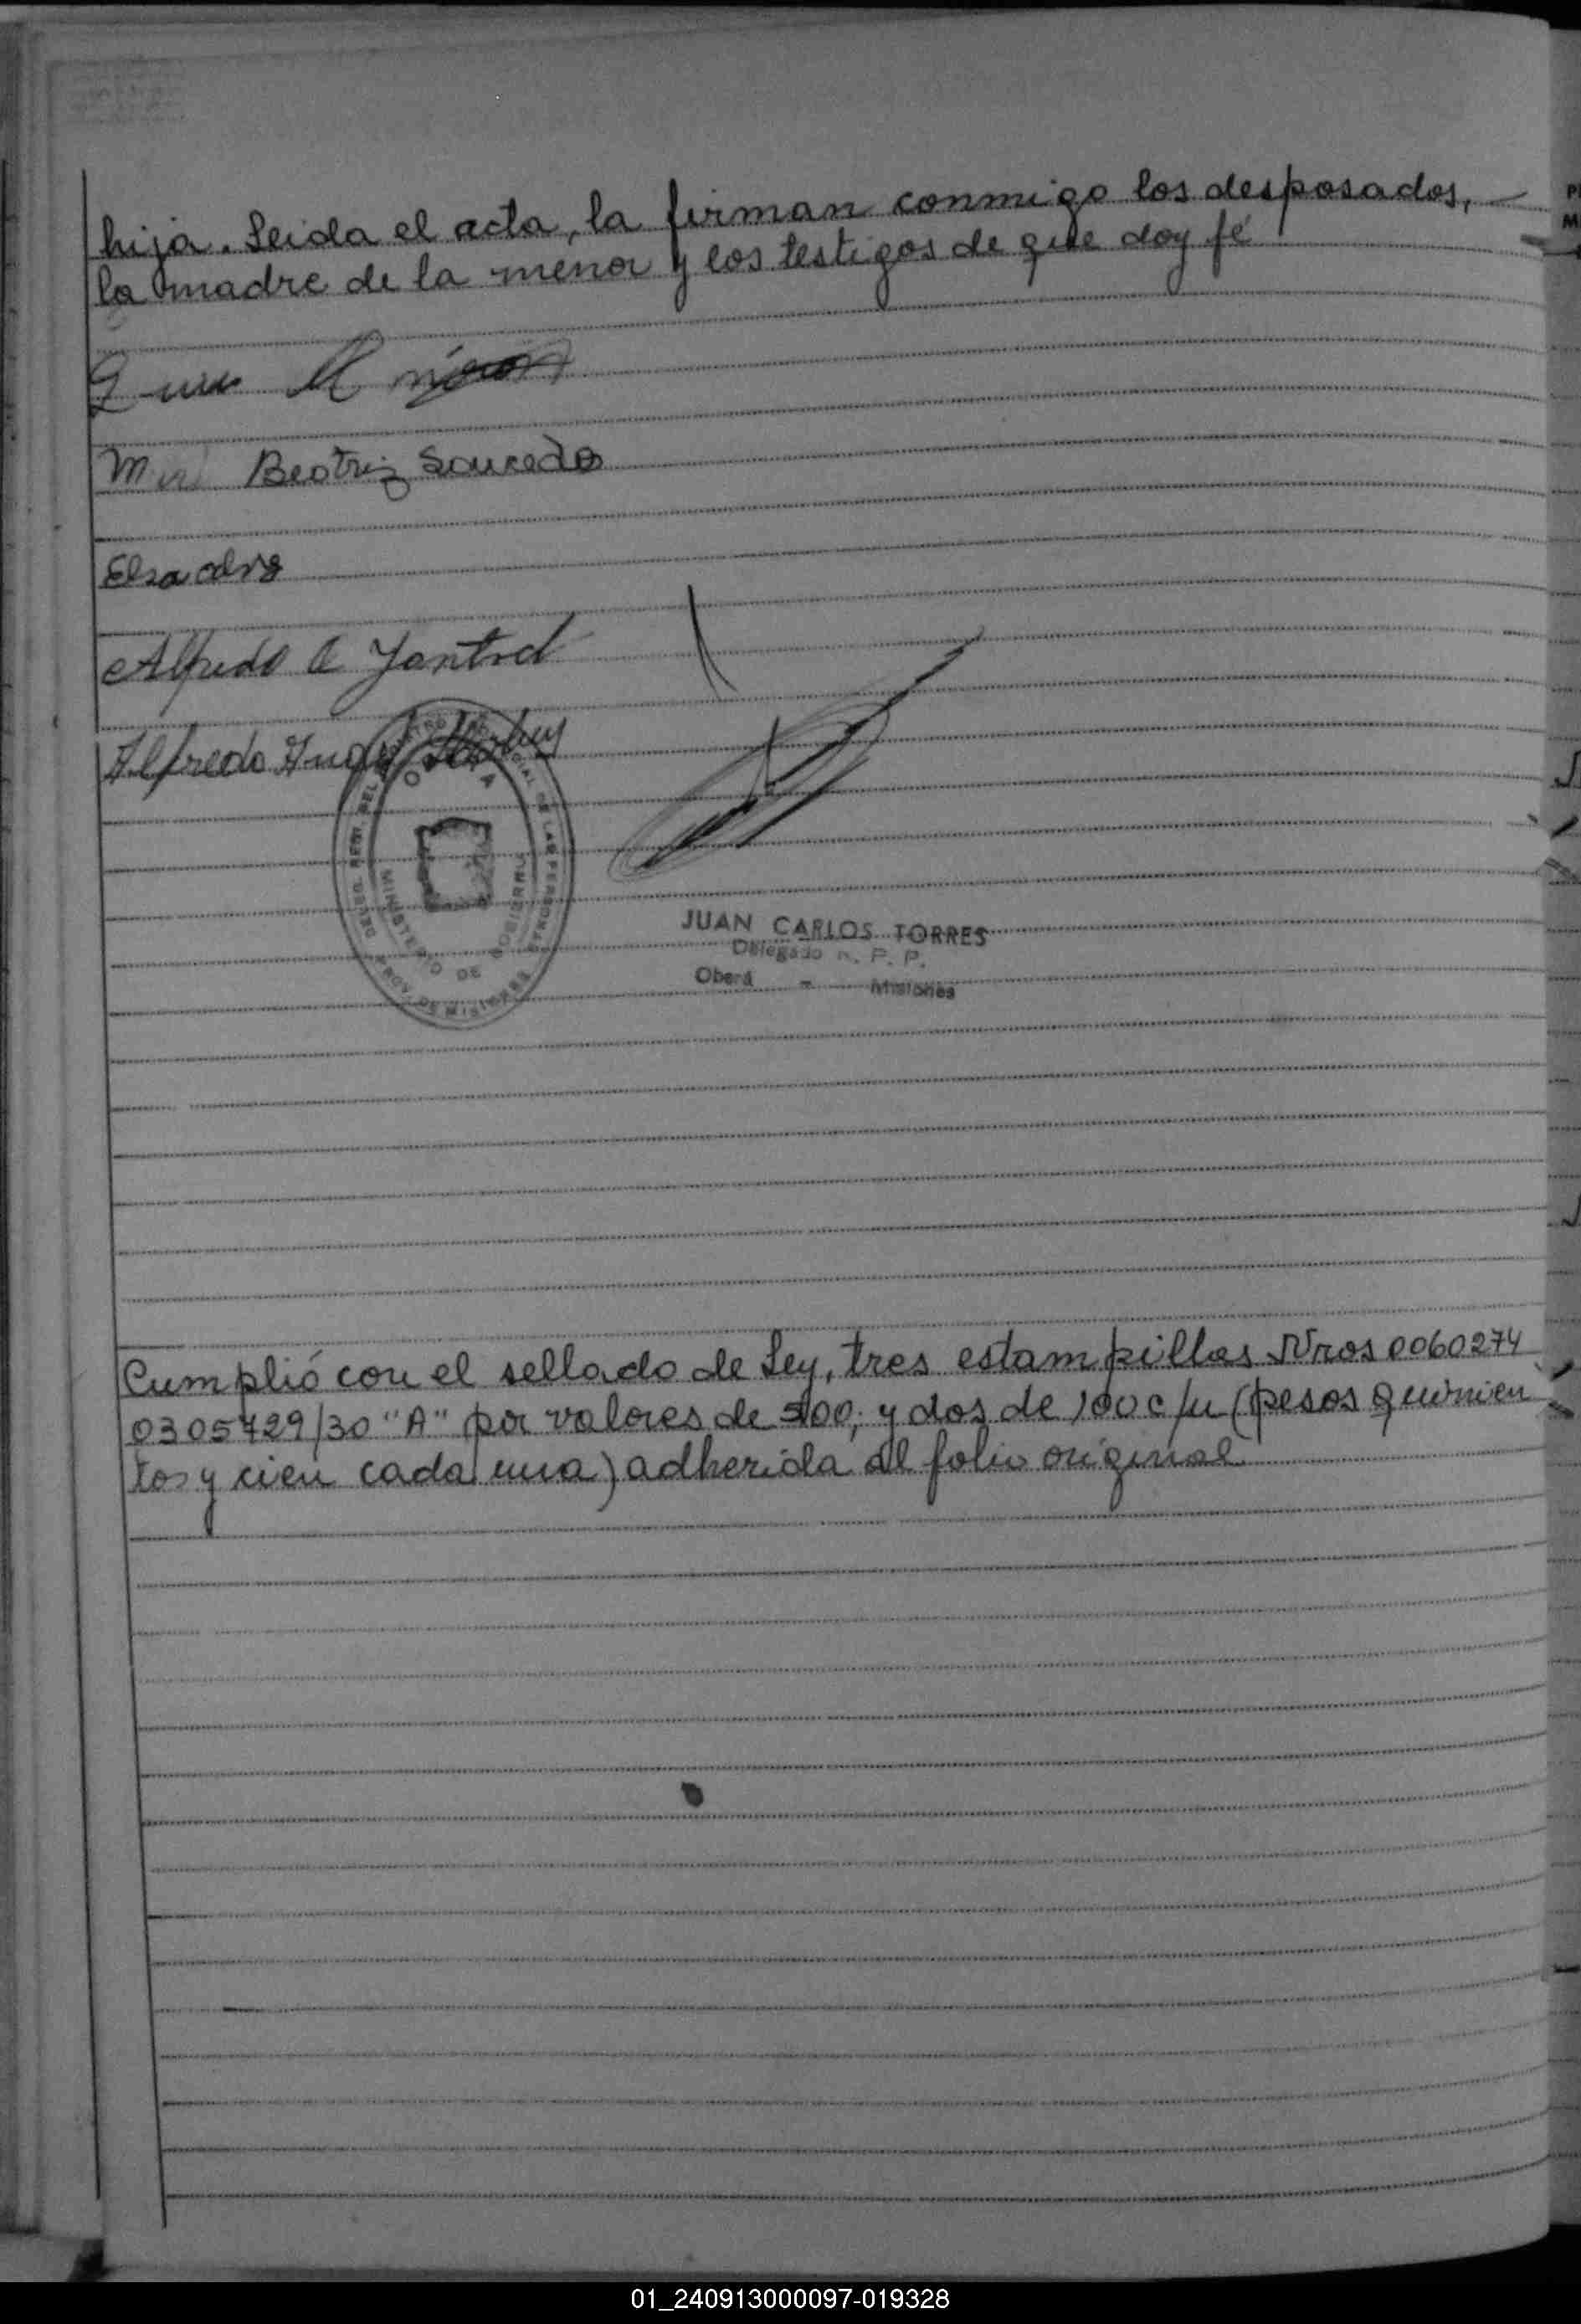 hija. Leida el acta, la firman conmigo los desposados,
la madre de la menor y los testigos de que doy fé
Luis M
Beatriz Soucedo
Elsa
Alfredo
Alfredo Hugo
OBERA
MINISTERIO DE GOBIERNO
PROV. DE MISIONES
DE LAS PERSONAS
JUAN CARLOS TORRES
Delegado R. P. P.
Oberá - Misiones
Cumplió con el sellado de Ley, tres estampillas Nros 0060274
0305729/30 "A" por valores de 500, y dos de 100 c/u (pesos quinien
tos y cien cada una) adherida al folio original
01_240913000097-019328